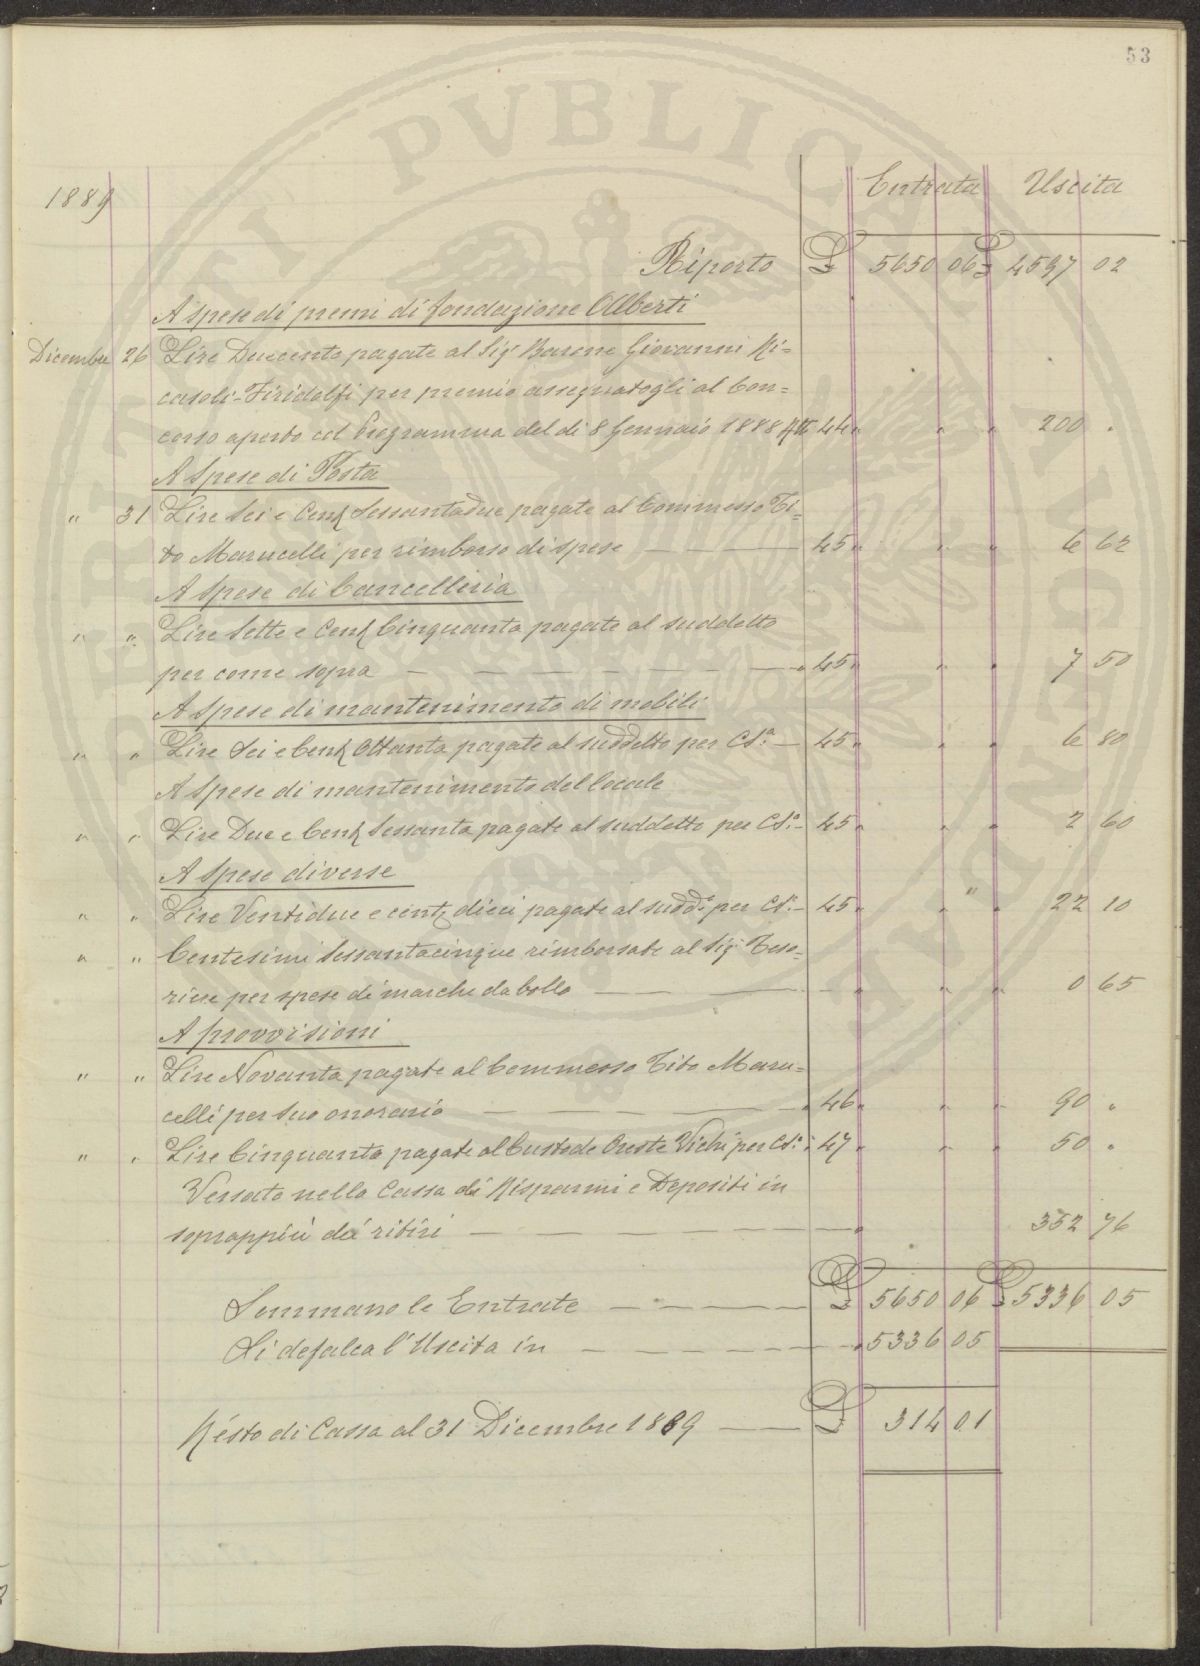 53
1889 Entrata Uscita
Riporto £ 5650 06 £ 4597 02
A spese di premi di fondazione Alberti
Dicembre 26 Lire Duecento pagate al Sigr Barone Giovanni Ri=
casoli-Firidolfi per premio assegnatogli al Con=
corso aperto col Programma del di 8 Gennaio 1888 44 " " " 200 "
A Spese di Posta
" 31 Lire Sei e Cent Sessantadue pagate al Commesso Ti=
to Marucelli per rimborso di spese — 45 " " " 6 62
A Spese di Cancelleria
" " Lire Sette e Cent Cinquanta pagate al suddetto
per come sopra — 45 " " " 7 50
A spese di mantenimento di mobili
" " Lire Sei e Cent Ottanta pagate al suddetto per Cs.a — 45 " " " 6 80
A Spese di mantenimento del locale
" " Lire Due e Cent Sessanta pagate al suddetto per Cs.a — 45 " " " 2 60
A Spese diverse
" " Lire Ventidue e cent dieci pagate al sudd.o per Cs.a — 45 " " " 22 10
" " Centesimi Sessantacinque rimborsate al Sig. Teso=
riere per spese di marche da bollo — " " " 0 65
A provvisioni
" " Lire Novanta pagate al Commesso Tito Maru=
celli per suo onorario — 46 " " " 90 "
" " Lire Cinquanta pagate al Custode Oreste Vichi per Cs.a 47 " " " 50 "
Versato nella Cassa di Risparmi e Depositi in
soprappiù dá ritiri — " 352 76
Sommano le Entrate — £ 5650 06 £ 5336 05
Si defalca l'Uscita in — " 5336 05
Résto di Cassa al 31 Dicembre 1889 — £ 314 01